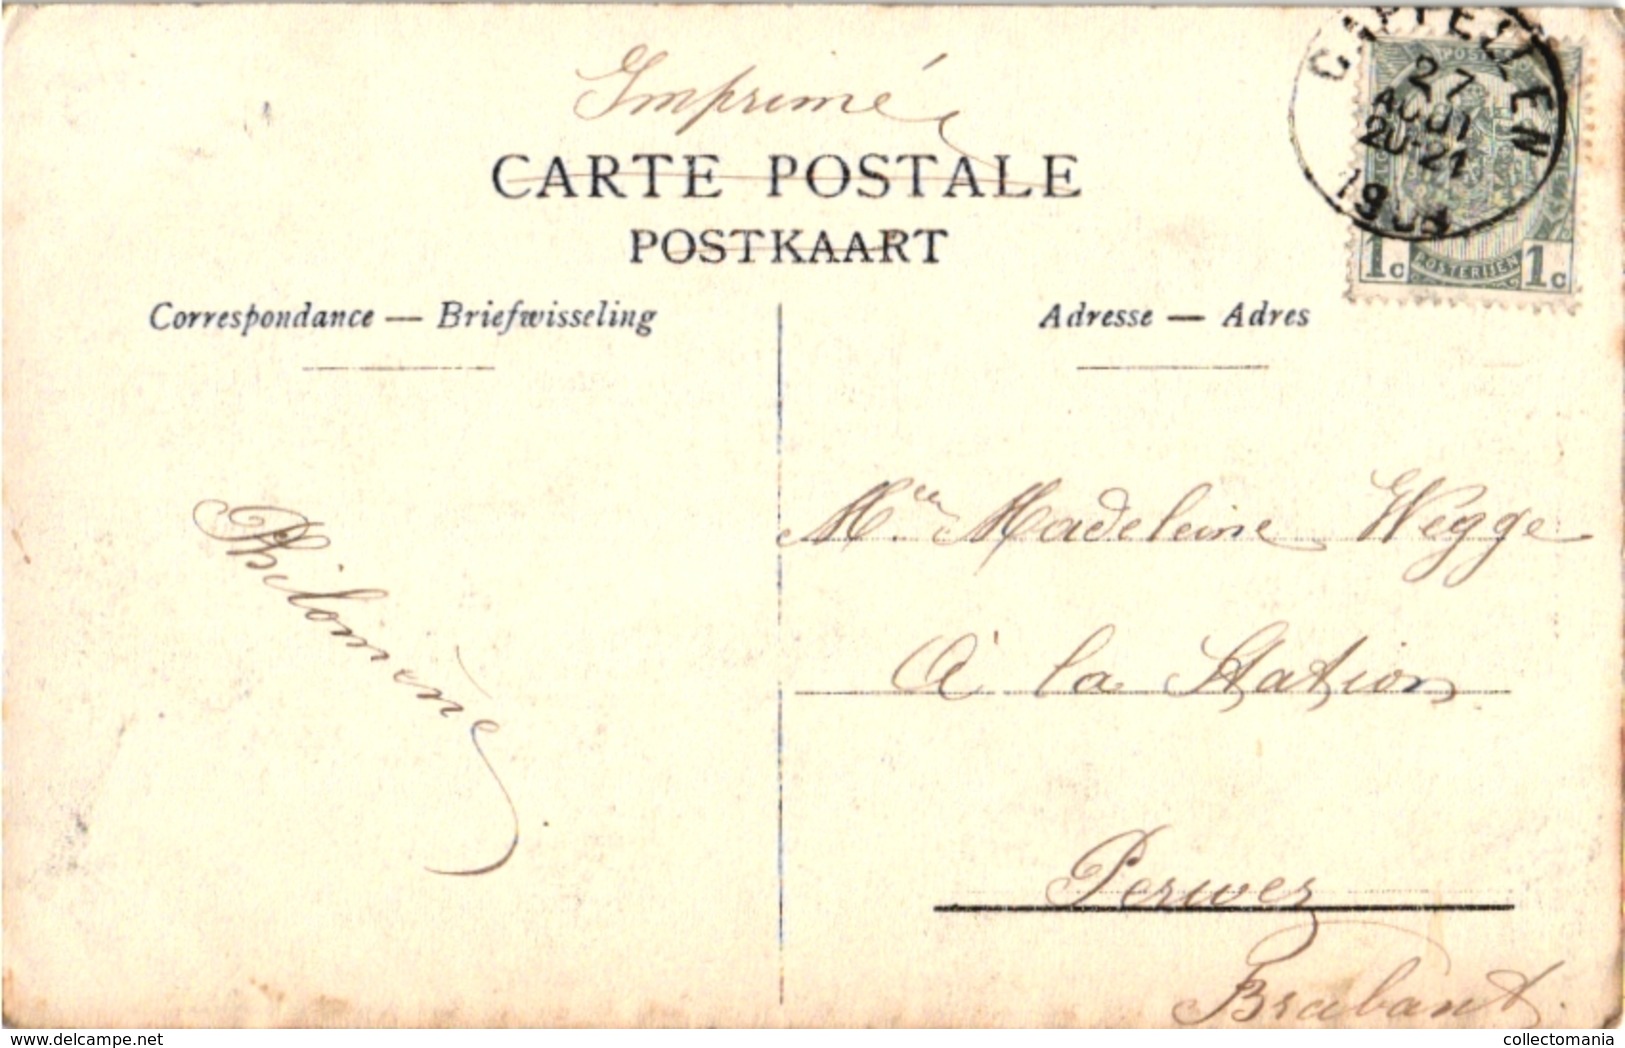 Imprimé
CARTE POSTALE
POSTKAART
Correspondance — Briefwisseling
Adresse — Adres
CAPPELLEN
27
AOUT
20-21
1904
1c POSTERIJEN 1c
Philomène
Mlle Madeleine Wegge
À la Station
Perwez
Brabant.
www.delcampe.net
collectomania